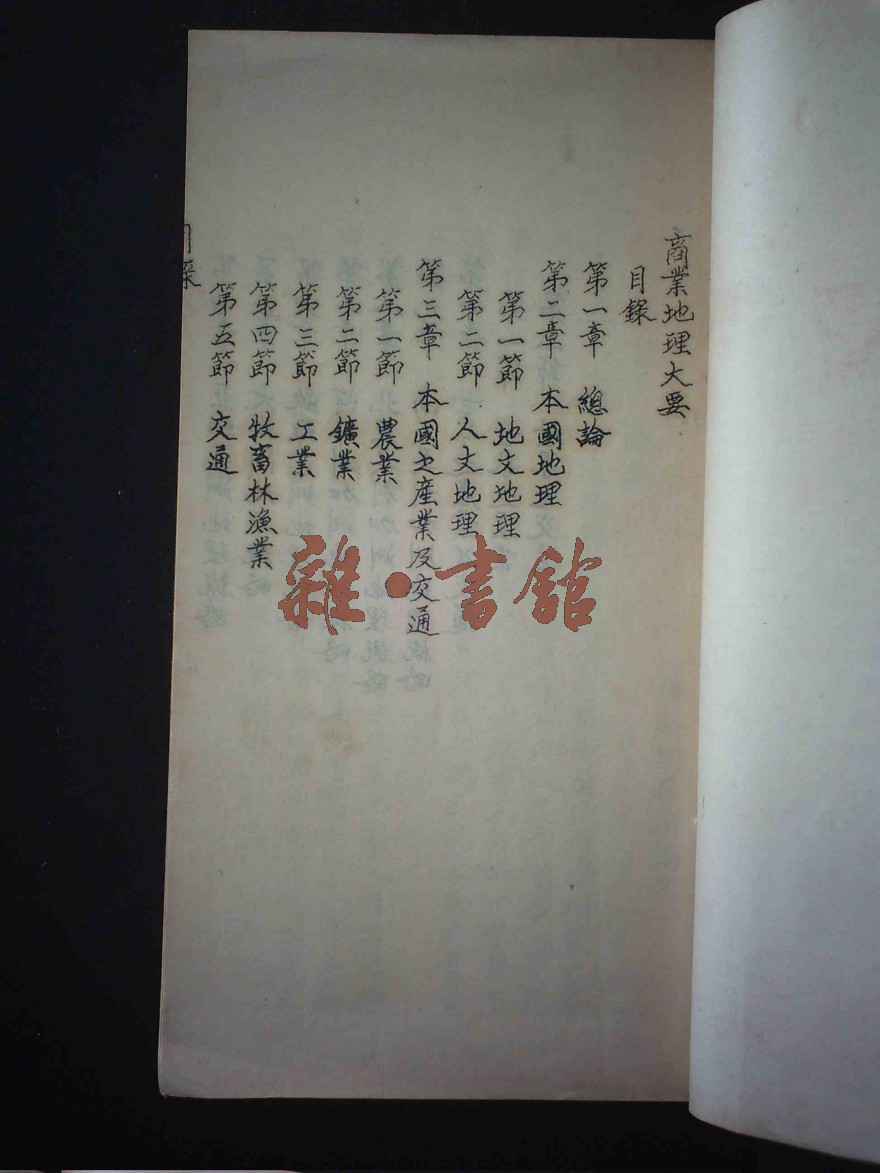 商業地理大要
目錄
第一章 總論
第二章 本國地理
第一節 地文地理
第二節 人文地理
第三章 本國之產業及交通
第一節 農業
第二節 鑛業
第三節 工業
第四節 牧畜林漁業
第五節 交通
雜·書館